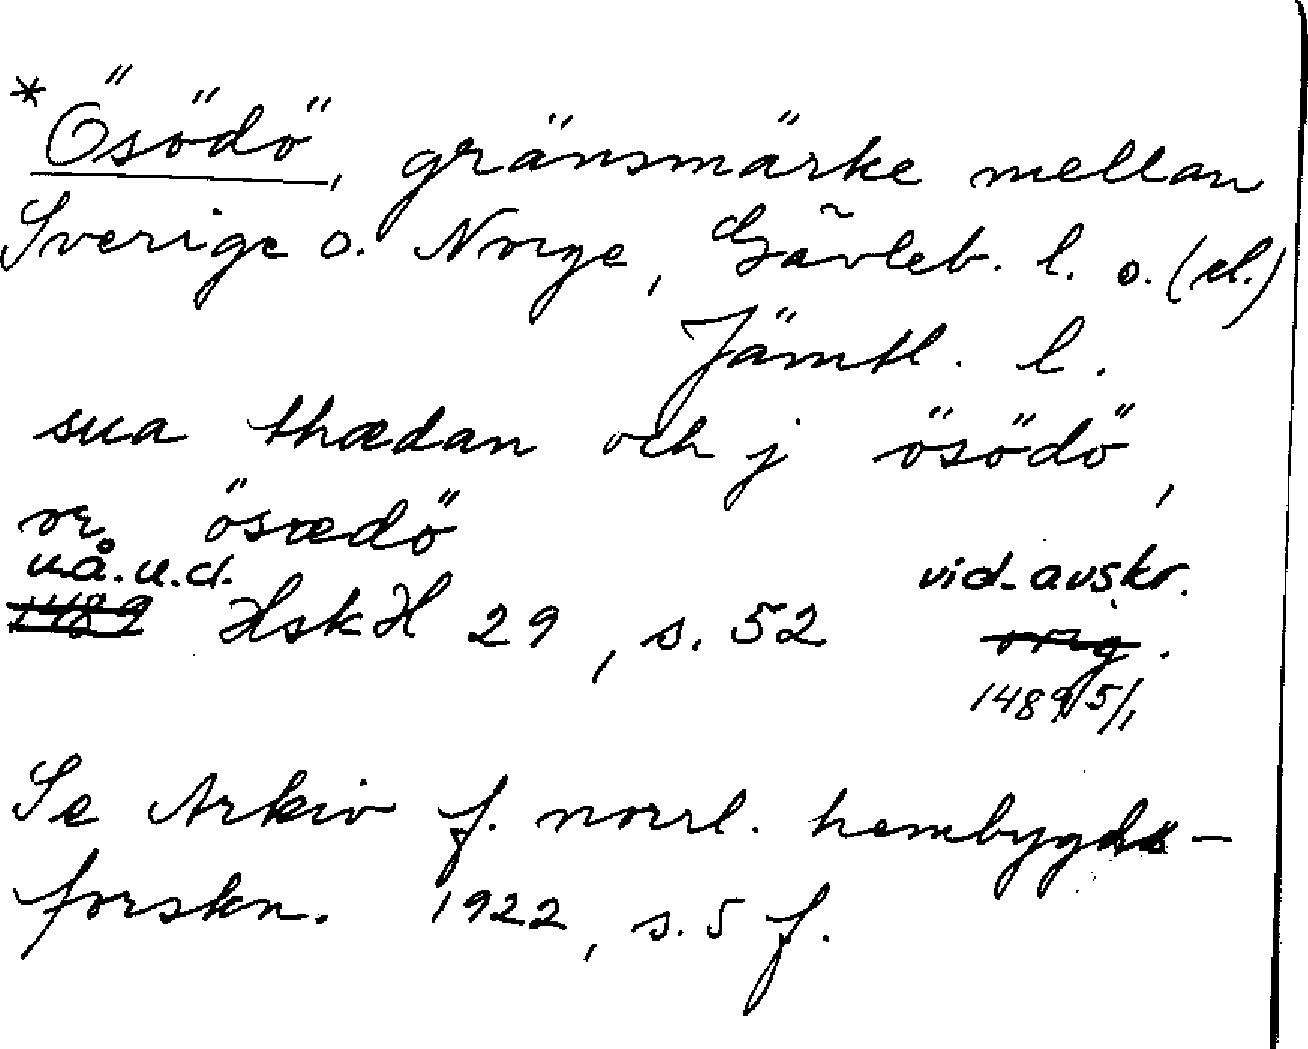 *Ösödö, gränsmärke mellan
Sverige o. Norge, Gävleb. l. o. (el.)
Jämtl. l.
sua thædan och j ösödö,
or ösædö
u.å.u.d. vid. avskr.
1489 HskH 29, s. 52 orig.
1489 5/1
Se Arkiv f. norrl. hembygds-
forskn. 1922, s. 5 f.